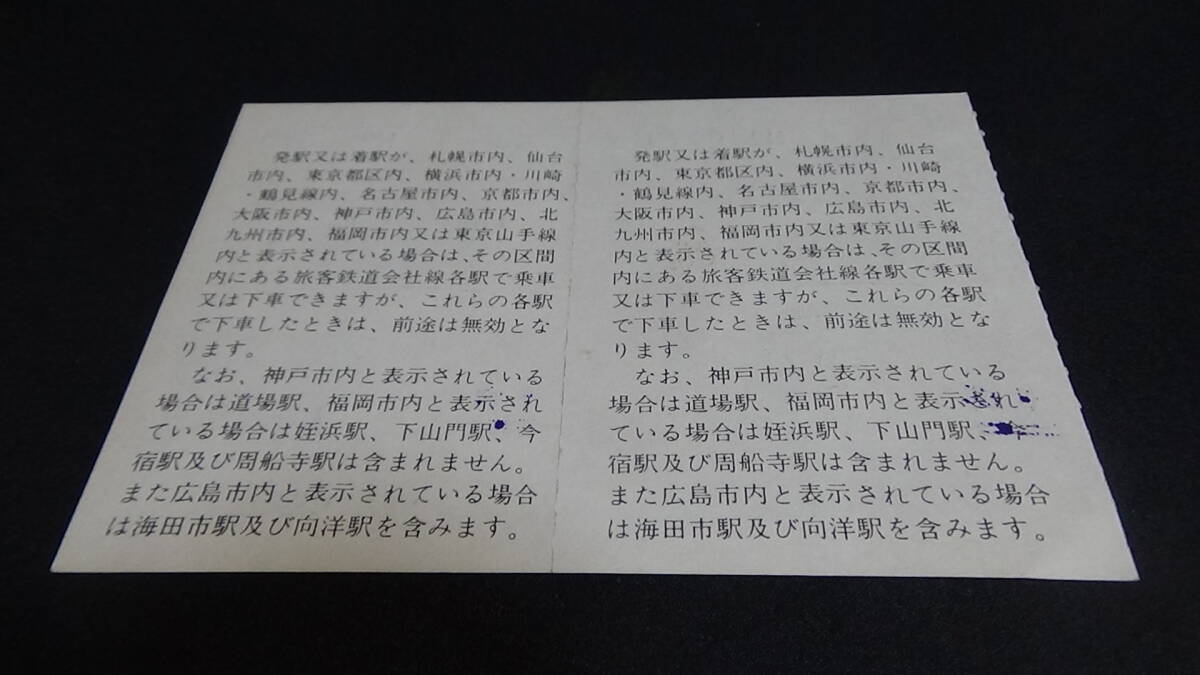 発駅又は着駅が、札幌市内、仙台
市内、東京都区内、横浜市内・川崎
・鶴見線内、名古屋市内、京都市内、
大阪市内、神戸市内、広島市内、北
九州市内、福岡市内又は東京山手線
内と表示されている場合は、その区間
内にある旅客鉄道会社線各駅で乗車
又は下車できますが、これらの各駅
で下車したときは、前途は無効とな
ります。
なお、神戸市内と表示されている
場合は道場駅、福岡市内と表示され
ている場合は姪浜駅、下山門駅、今
宿駅及び周船寺駅は含まれません。
また広島市内と表示されている場合
は海田市駅及び向洋駅を含みます。
発駅又は着駅が、札幌市内、仙台
市内、東京都区内、横浜市内・川崎
・鶴見線内、名古屋市内、京都市内、
大阪市内、神戸市内、広島市内、北
九州市内、福岡市内又は東京山手線
内と表示されている場合は、その区間
内にある旅客鉄道会社線各駅で乗車
又は下車できますが、これらの各駅
で下車したときは、前途は無効とな
ります。
なお、神戸市内と表示されている
場合は道場駅、福岡市内と表示され
ている場合は姪浜駅、下山門駅、今
宿駅及び周船寺駅は含まれません。
また広島市内と表示されている場合
は海田市駅及び向洋駅を含みます。